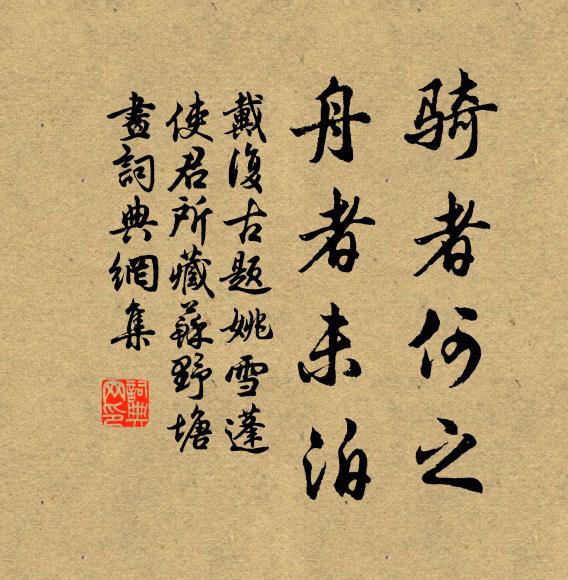 騎者何之
舟者未泊
戴復古题姚雪蓬
使君所藏蘇野塘
畫詞典網集
詞典
网印